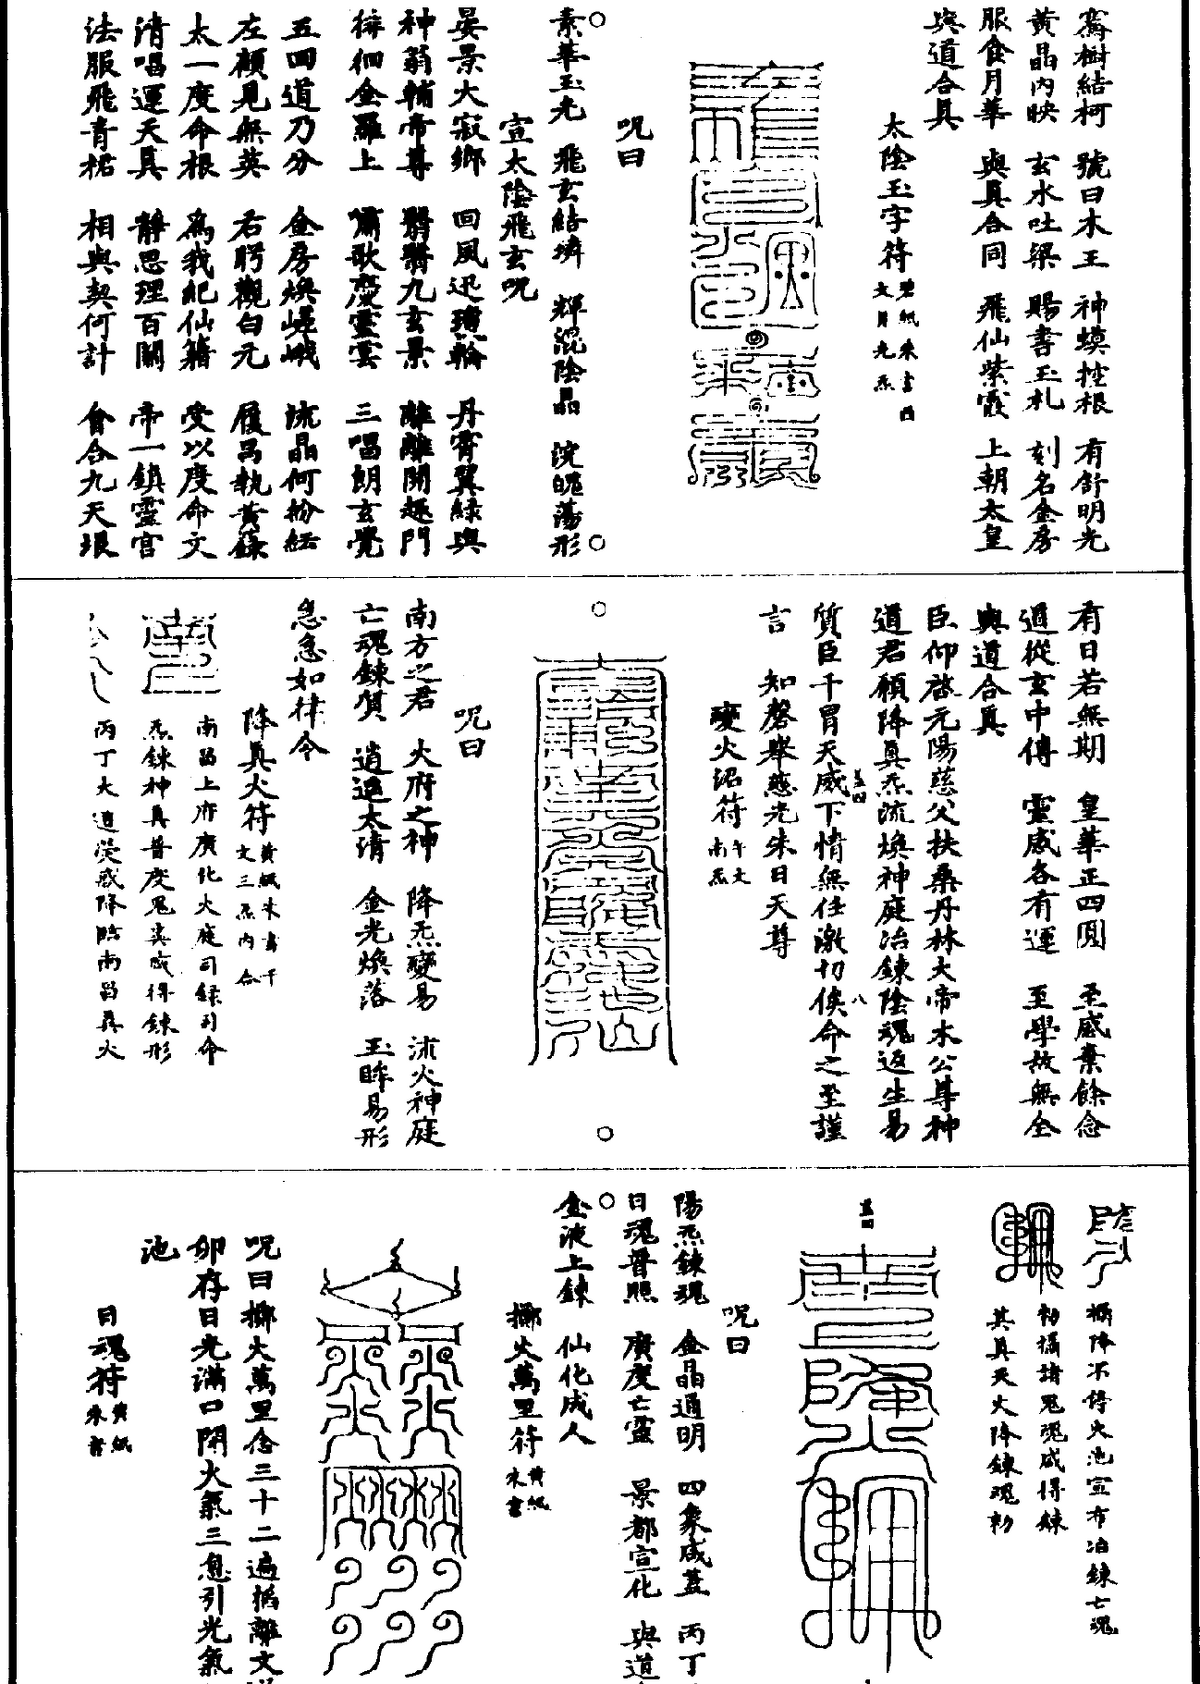 騫樹結柯 號曰木王 神蟆控根 有舒明光
黃晶內映 玄水吐梁 賜書玉札 刻名金房
服食月華 與真合同 飛仙紫霞 上朝太皇
與道合真
太陰玉字符 碧紙朱書四
文月光炁
呪曰
素華玉光 飛玄結璘 輝混陰晶 浣魄蕩形
宣太陰飛玄呪
晏景大寂鄉 回風迅瓊輪 丹霄翼綠輿
神翁輔帝尊 翳翳九玄景 離離開趣門
徘徊金羅上 嘯歌慶霊雲 三唱朗玄覺
五回道乃分 金房煥嵯峨 流晶何紛紜
左顧見無英 右盻觀白元 履昌執黃籙
太一度命根 為我紀仙籍 受以度命文
清唱運天真 靜思理百關 帝一鎮靈宮
法服飛青裙 相與契何計 會合九天垠
有日若無期 皇華正四圓 至感棄餘念
道從玄中傳 靈感各有運 至學故無全
與道合真
臣仰啓元陽慈父扶桑丹林大帝木公尊神
道君願降真炁流煥神庭冶鍊陰魂返生易
質臣千冒天威下情無任激切俟命之至謹
言 知磬舉慈光朱日天尊
蓋四
八
變火沼符 午文
南炁
呪曰
南方之君 火府之神 降炁變易 沭火神庭
亡魂鍊質 逍遥太清 金光煥落 玉眸易形
急急如律令
降真火符 黃紙朱書干
文三炁內合
南昌上府廣化火庭司録司命
炁鍊神真普度鬼爽咸得鍊形
丙丁大道熒惑降臨南昌真火
攝降不停火池宣布冶鍊亡魂
初攝諸鬼魂咸得鍊
其真天火降鍊魂勑
蓋四
呪曰
陽炁鍊魂 金晶通明 四象咸蓋 丙丁
日魂普照 廣度亡靈 景都宣化 與道
金液上鍊 仙化成人
擲火萬里符 黃紙
朱書
呪曰擲火萬里念三十二遍掐離文
卯存日光滿口開火氣三息引光氣
池
日魂符 黃紙
朱書